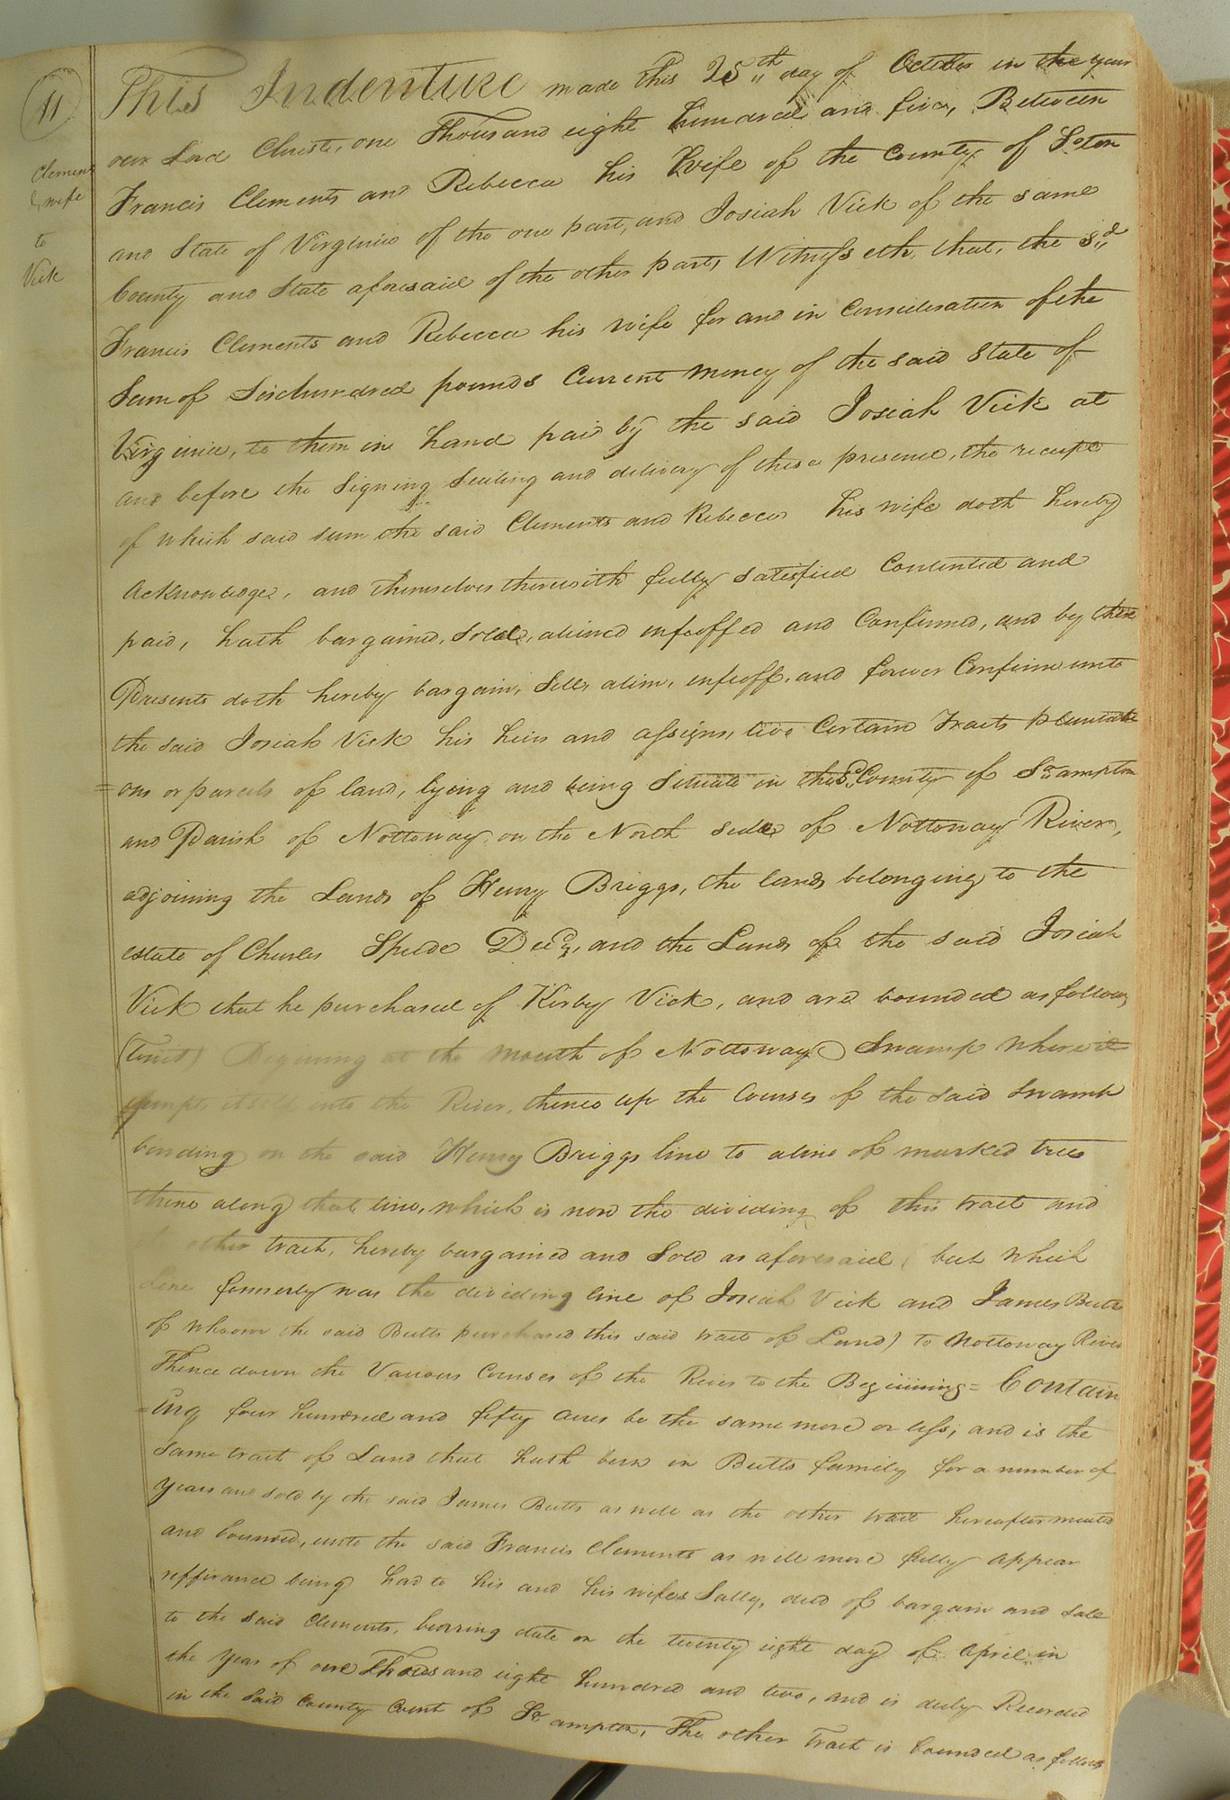 11
Clements
& wife
to
Vick
This Indenture made this 25th day of October in the year
our Lord Christ, one Thousand eight hundred and five, Between
Francis Clements and Rebecca his Wife of the County of Soton
and State of Virginia of the one part, and Josiah Vick of the same
County and State aforesaid of the other part, Witnesseth, that, the sd
Francis Clements and Rebecca his wife for and in Consideration of the
Sum of Sixhundred pounds Current money of the said State of
Virginia, to them in hand paid by the said Josiah Vick at
and before the Signing Sealing and delivery of these presence, the receipt
of which said sum the said Clements and Rebecca his wife doth hereby
acknowledge, and themselves therewith fully satisfied Contented and
paid, hath bargained, Sold, aliened infeoffed and Confirmed, and by these
Presents doth hereby bargain, Sell, alien, infeoff, and forever Confirm unto
the said Josiah Vick his heirs and assigns, two Certain Tracts plantati
=ons or parcels of land, lying and being Situate in the sd County of So.ampton
and Parish of Nottoway on the North side of Nottoway River,
adjoining the Lands of Henry Briggs, the lands belonging to the
estate of Charles Decd, and the Lands of the said Josiah
Vick that he purchased of Kirby Vick, and are bounded as follows
(towit) Begining at the mouth of Nottoway Swamp where it
empts itself into the River, thence up the Courses of the said Swamp
bending on the said Henry Briggs line to a line of marked trees
thence along that line, which is now the dividing of this tract and
other tract, hereby bargained and Sold as aforesaid (but which
line formerly was the dividing line of Josiah Vick and James Butts
of whoom the said Butts purchased this said tract of Land) to Nottoway River
Thence down the Various Courses of the River to the Begining= Contain
=ing four hundred and fifty acres be the same more or less, and is the
Same tract of Land that hath been in Butts family for a number of
years and sold by the said James Butts as well as the other tract hereafter mentd
and bounded, unto the said Francis Clements as will more fully appear
refferance being had to his and his wifes Sally, deed of bargain and Sale
to the said Clements, bearing date on the twenty eight day of April in
the year of our Thousand eight hundred and two, and is duly Recorded
in the said County Court of So.ampton, The other Tract is bounded as follows